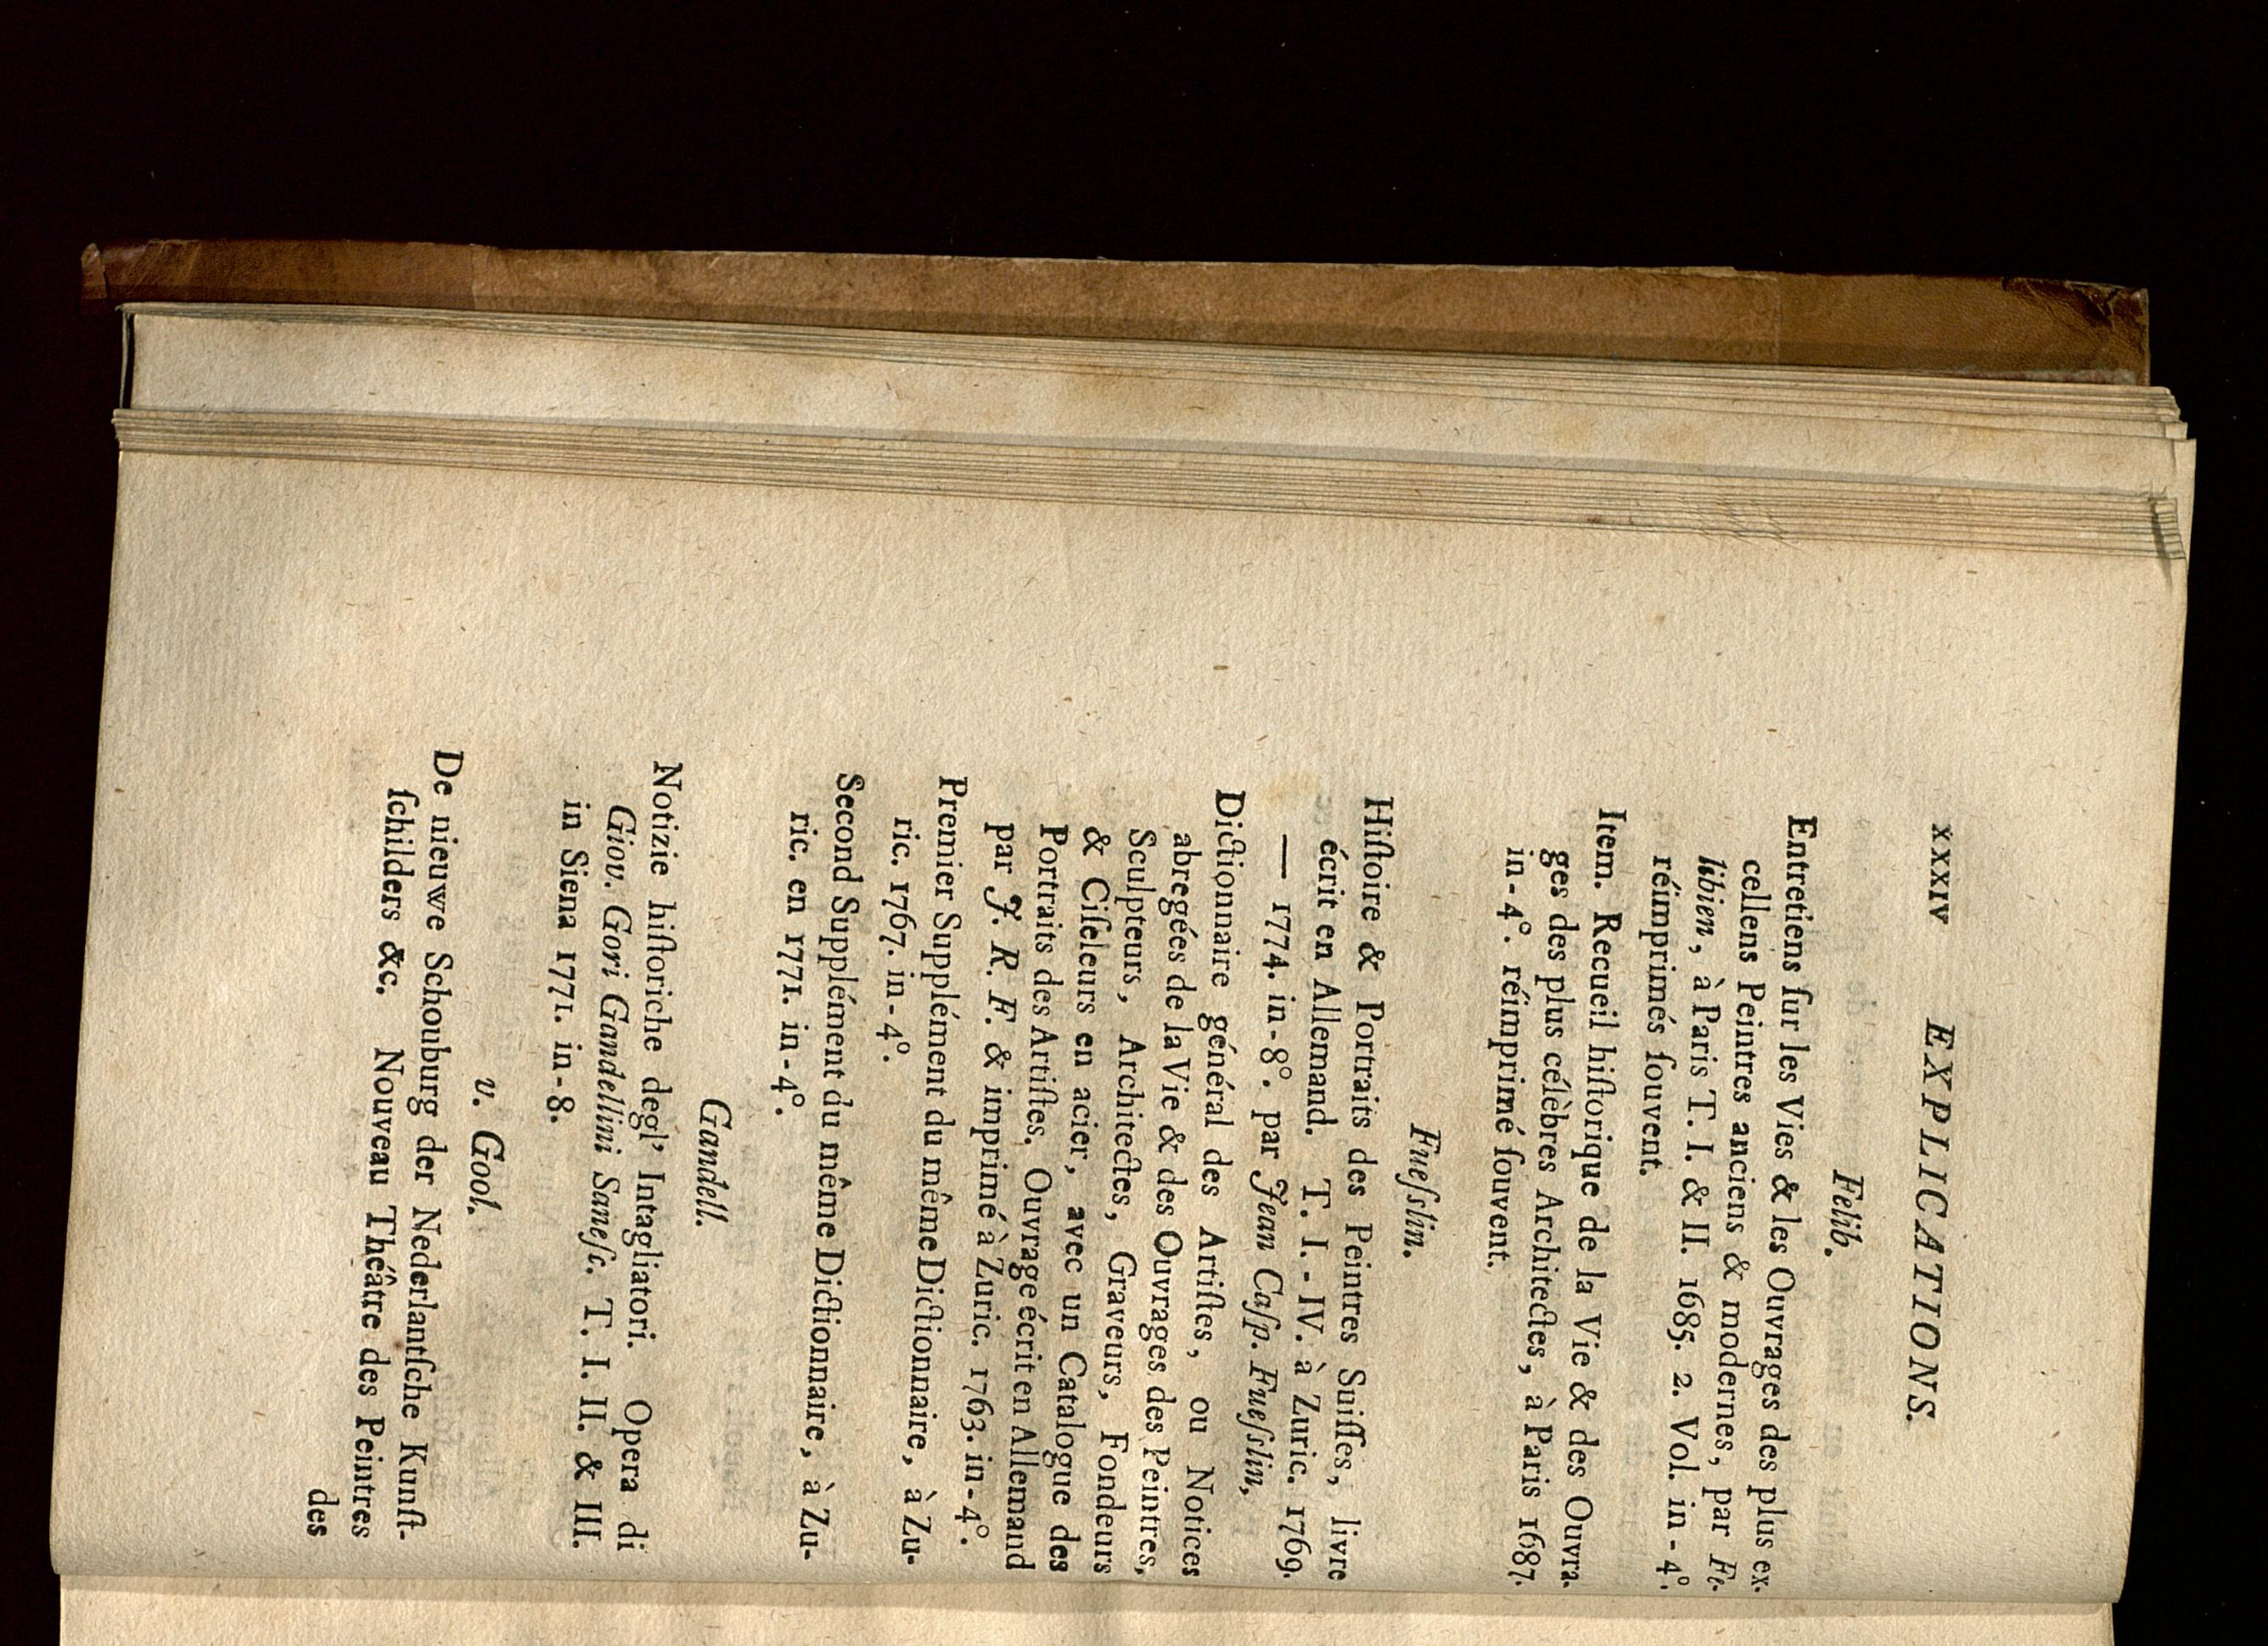 xxxiv EXPLICATIONS.
Felib.
Entretiens ſur les Vies & les Ouvrages des plus ex-
cellens Peintres anciens & modernes, par Fe-
libien, à Paris T. I. & II. 1685. 2. Vol. in-4°.
réimprimés ſouvent.
Item. Recueil hiſtorique de la Vie & des Ouvra-
ges des plus célèbres Architectes, à Paris 1687.
in-4°. réimprimé ſouvent.
Fueſslin.
Hiſtoire & Portraits des Peintres Suiſſes, livre
écrit en Allemand. T. I.-IV. à Zuric. 1769.
— 1774. in-8°. par Jean Caſp. Fueſslin,
Dictionnaire général des Artiſtes, ou Notices
abregées de la Vie & des Ouvrages des Peintres,
Sculpteurs, Architectes, Graveurs, Fondeurs
& Ciſeleurs en acier, avec un Catalogue des
Portraits des Artiſtes. Ouvrage écrit en Allemand
par J. R. F. & imprimé à Zuric. 1763. in-4°.
Premier Supplément du même Dictionnaire, à Zu-
ric. 1767. in-4°.
Second Supplément du même Dictionnaire, à Zu-
ric. en 1771. in-4°.
Gandell.
Notizie hiſtoriche degl' Intagliatori. Opera di
Giov. Gori Gandellini Saneſc. T. I. II. & III.
in Siena 1771. in-8.
v. Gool.
De nieuwe Schouburg der Nederlantſche Kunſt-
ſchilders &c. Nouveau Théâtre des Peintres
des